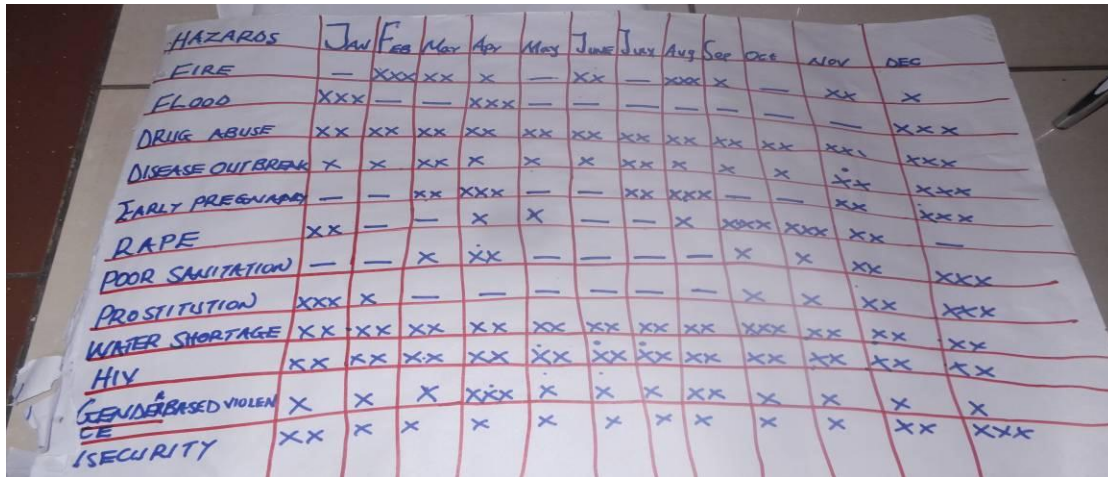 HAZARDS JAN FEB Mar Apr May JUNE JULY Aug Sep Oct NOV DEC
FIRE — XXX XX X — XX — XXX X — XX X
FLOOD XXX — — XXX — — — — — — — XXX
DRUG ABUSE XX XX XX XX XX XX XX XX XX XX XX XXX
DISEASE OUTBREAK X X XX X X X XX X X X XX XXX
EARLY PREGNANCY — — XX XXX — — XX XXX — — XX XXX
RAPE XX — — X X — — X XXX XXX XX —
POOR SANITATION — — X XX — — — — X X XX XXX
PROSTITUTION XXX X — — — — — — X X XX XXX
WATER SHORTAGE XX XX XX XX XX XX XX XX XXX XX XX XX
HIV XX XX XX XX XX XX XX XX XX XX XX XX
GENDER BASED VIOLEN X X X XXX X X X XX X X X X
CE
ISECURITY XX X X X X X X X X X XX XXX